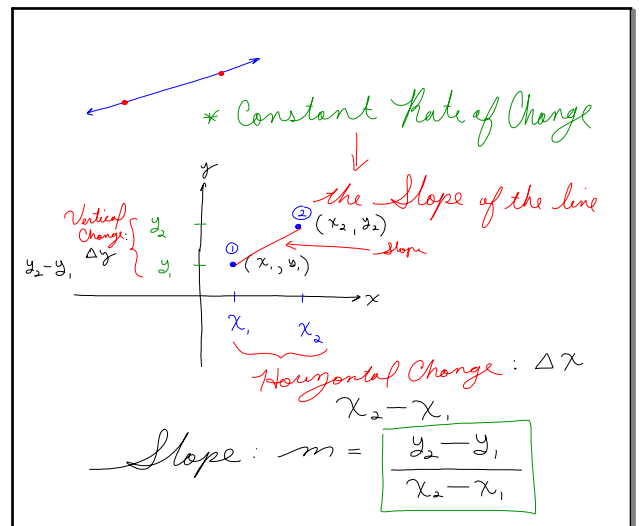 * Constant Rate of Change
the Slope of the line
y
Vertical
Change:
Δy
y₂-y₁
y₂
y₁
②
(x₂, y₂)
①
(x₁, y₁)
Slope
x
x₁
x₂
Horizontal Change: Δx
x₂-x₁
Slope: m = y₂-y₁
x₂-x₁